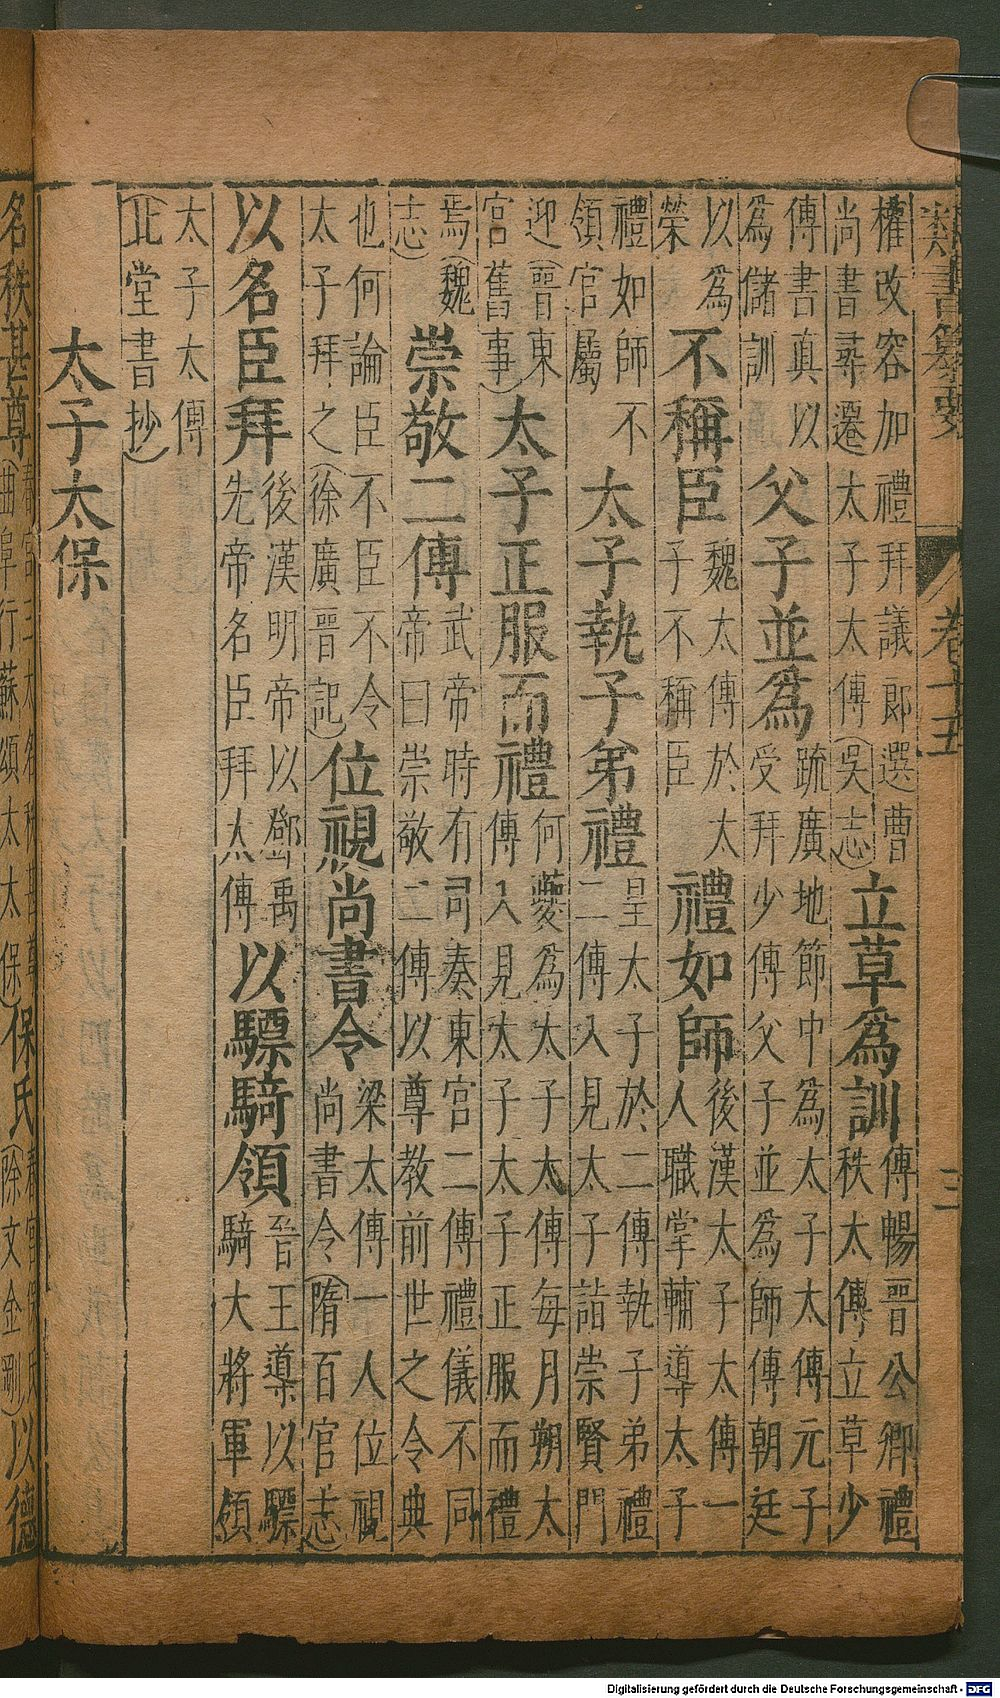 類書纂要 卷十五 三
權改容加禮拜議郎選曹尚書尋遷太子太傅(吳志)立草為訓傅暢晉公卿禮秩太傅立草少
傅書真以為儲訓父子並為疏廣地節中為太子太傅元子受拜少傅父子並為師傅朝廷
以為榮不稱臣魏太傅於太子不稱臣禮如師後漢太子太傅一人職掌輔導太子
禮如師不領官屬太子執子弟禮皇太子於二傅執子弟禮二傅入見太子詣崇賢門
迎(晉東宮舊事)太子正服而禮何夔為太子太傅每月朔太傅入見太子太子正服而禮
焉(魏志)崇敬二傅武帝時有司奏東宮二傅禮儀不同帝曰崇敬二傅以尊教前世之令典
也何論臣不臣不令太子拜之(徐廣晉記)位視尚書令梁太傅一人位視尚書令(隋百官志)
以名臣拜後漢明帝以鄧禹先帝名臣拜太傅以驃騎領晉王導以驃騎大將軍領
太子太傅(北堂書抄)
太子太保
名秩甚尊春宮三太名秩甚尊(曲阜行蘇頌太太保)保氏春宮保氏(除文金剛)以德
Digitalisierung gefördert durch die Deutsche Forschungsgemeinschaft - DFG